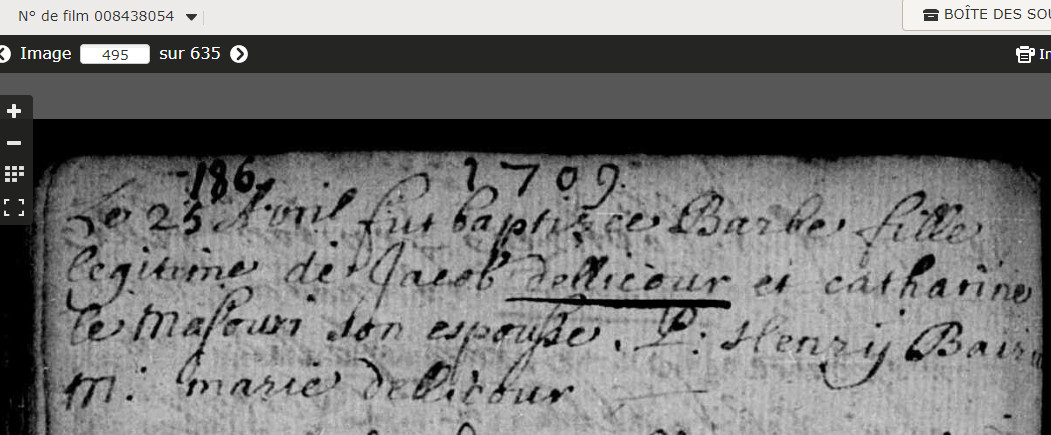 N° de film 008438054
BOÎTE DES SOU
Image 495 sur 635
186. 1709.
Le 25 Avril fut baptisée Barbe fille
legitime de Jacob dellicour et catharine
le Masouri son espouse. P: Henrÿ
M: marie dellicour